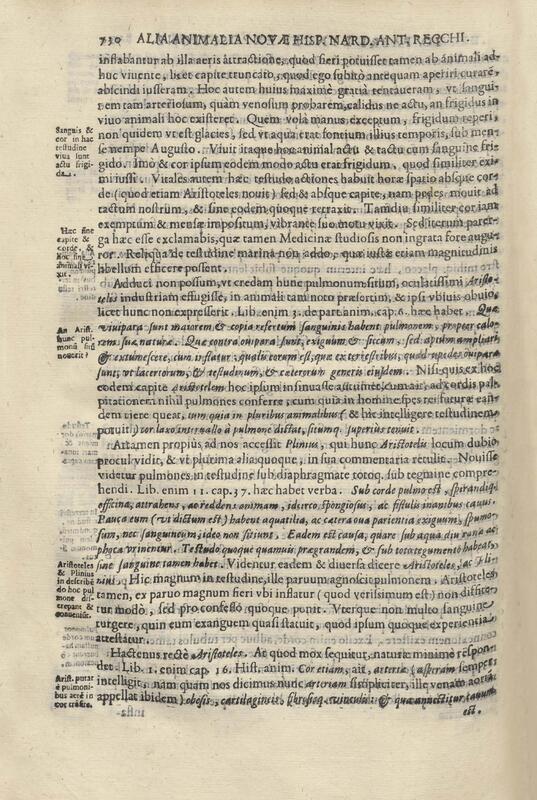 730 ALIA ANIMALIA NOVÆ HISP. NARD. ANT. RECCHI.
inflabantur ab illa aeris attractione, quod fieri potuisset tamen ab animali ad-
huc vivente, licet capite truncato, quod ego subitò antequam aperiri curarē,
abscindi iusseram. Hoc autem huius maximè gratia tentaueram, vt sangui-
nem tam arteriosum, quàm venosum probarem, calidus ne actu, an frigidus in
viuo animali hoc existeret. Quem vola manus exceptum, frigidum reperi,
non quidem vt est glacies, sed vt aqua erat fontium illius temporis, sub men-
se nempe Augusto. Viuit itaque hoc animal actu & tactu cum sanguine fri-
gido. Imò & cor ipsum eodem modo actu erat frigidum, quod similiter exi-
mi iussi. Vitales autem hæc testudo actiones habuit horæ spatio absque cor-
de (quod etiam Aristoteles nouit) sed & absque capite, nam pedes mouit ad
tactum nostrum, & sine eodem quoque retraxit. Tamdiu similiter cor iam
exemptum & mensæ impositum, vibrante suo motu vixit. Sed iterum parer-
ga hæc esse exclamabis, quæ tamen Medicinæ studiosis non ingrata fore augu-
ror. Reliqua de testudine marina non addo, quæ iusta etiam magnitudinis
libellum efficere possent.
Sanguis &
cor in hac
testudine
viua sunt
actu frigi-
da.
Hæc sine
capite &
corde, &
hoc sine
animali vi-
xit.
Adduci non possum, vt credam hunc pulmonum situm, oculatissimi Aristo-
telis industriam effugisse, in animali tam noto præsertim, & ipsi vbiuis obuio,
licet hunc non expresserit. Lib. enim 3. de part. anim. cap. 6. hæc habet. Quæ
viuipara sunt maiorem, & copia refertum sanguinis habent pulmonem, propter calo-
rem suæ naturæ. Quæ contra ouipara sunt, exiguum & siccum: sed aptum ampliari
& extumescere, cum inflatur: qualis eorum est, quæ ex terrestribus, quadrupedes ouipara
sunt, vt lacertorum, & testudinum, & cæterorum generis eiusdem. Nisi quis ex hoc
eodem capite Aristotelem hoc ipsum insinuasse astruret, cum ait, ad cordis pal-
pitationem nihil pulmones conferre, cum quia in homine spes rei futuræ ean-
dem ciere queat, tum quia in pluribus animalibus (& hic intelligere testudinem
potuit) cor laxo interuallo à pulmone distat, sitúmq. superius tenuit.
An Arist.
hunc pul-
monū situ
nouerit?
Attamen propiùs ad nos accessit Plinius, qui hunc Aristotelis locum dubio
procul vidit, & vt plurima alia quoque, in sua commentaria retulit. Nouisse
videtur pulmones in testudine sub diaphragmate totoq. sub tegmine compre-
hendi. Lib. enim 11. cap. 37. hæc habet verba. Sub corde pulmo est, spirandiq.
officina, attrahens, ac reddens animam, idcirco spongiosus, ac fistulis inanibus cauus.
Pauca eum (vi dictum est) habent aquatilia, ac cætera oua parientia exiguum, spumo-
sum, nec sanguineum, ideo non sitiunt. Eadem est causa, quare sub aqua diu ranæ ac
phocæ vrinentur. Testudo quoque quamuis prægrandem, & sub toto tegumento habeat,
sine sanguine tamen habet. Videntur eadem & diuersa dicere Aristoteles, ac Pli-
nius, Hic magnum in testudine, ille paruum agnoscit pulmonem, Aristoteles
tamen, ex paruo magnum fieri vbi inflatur (quod verissimum est) non diffite-
tur modo, sed pro confesso quoque ponit. Vterque non multo sanguine
turgere, quin cum exanguem quasi statuit, quod ipsum quoque experientia
attestatur.
Aristoteles
& Plinius
in describē
do hoc pul
mone dis-
crepant &
conueniūt.
Hactenus rectè Aristoteles. At quod mox sequitur, naturæ minimè respon-
det. Lib. 1. enim cap. 16. Hist. anim. Cor etiam, ait, arteriæ (asperam semper
intelligit, nam quam nos dicimus nunc arteriam simpliciter, ille venam aortā
appellat ibidem) obesis, cartilagineis, fibrosisq. vinculis: & quà annectitur, cauum
Arist. putat
è pulmoni-
bus aerē in
cor trāsire.
est.